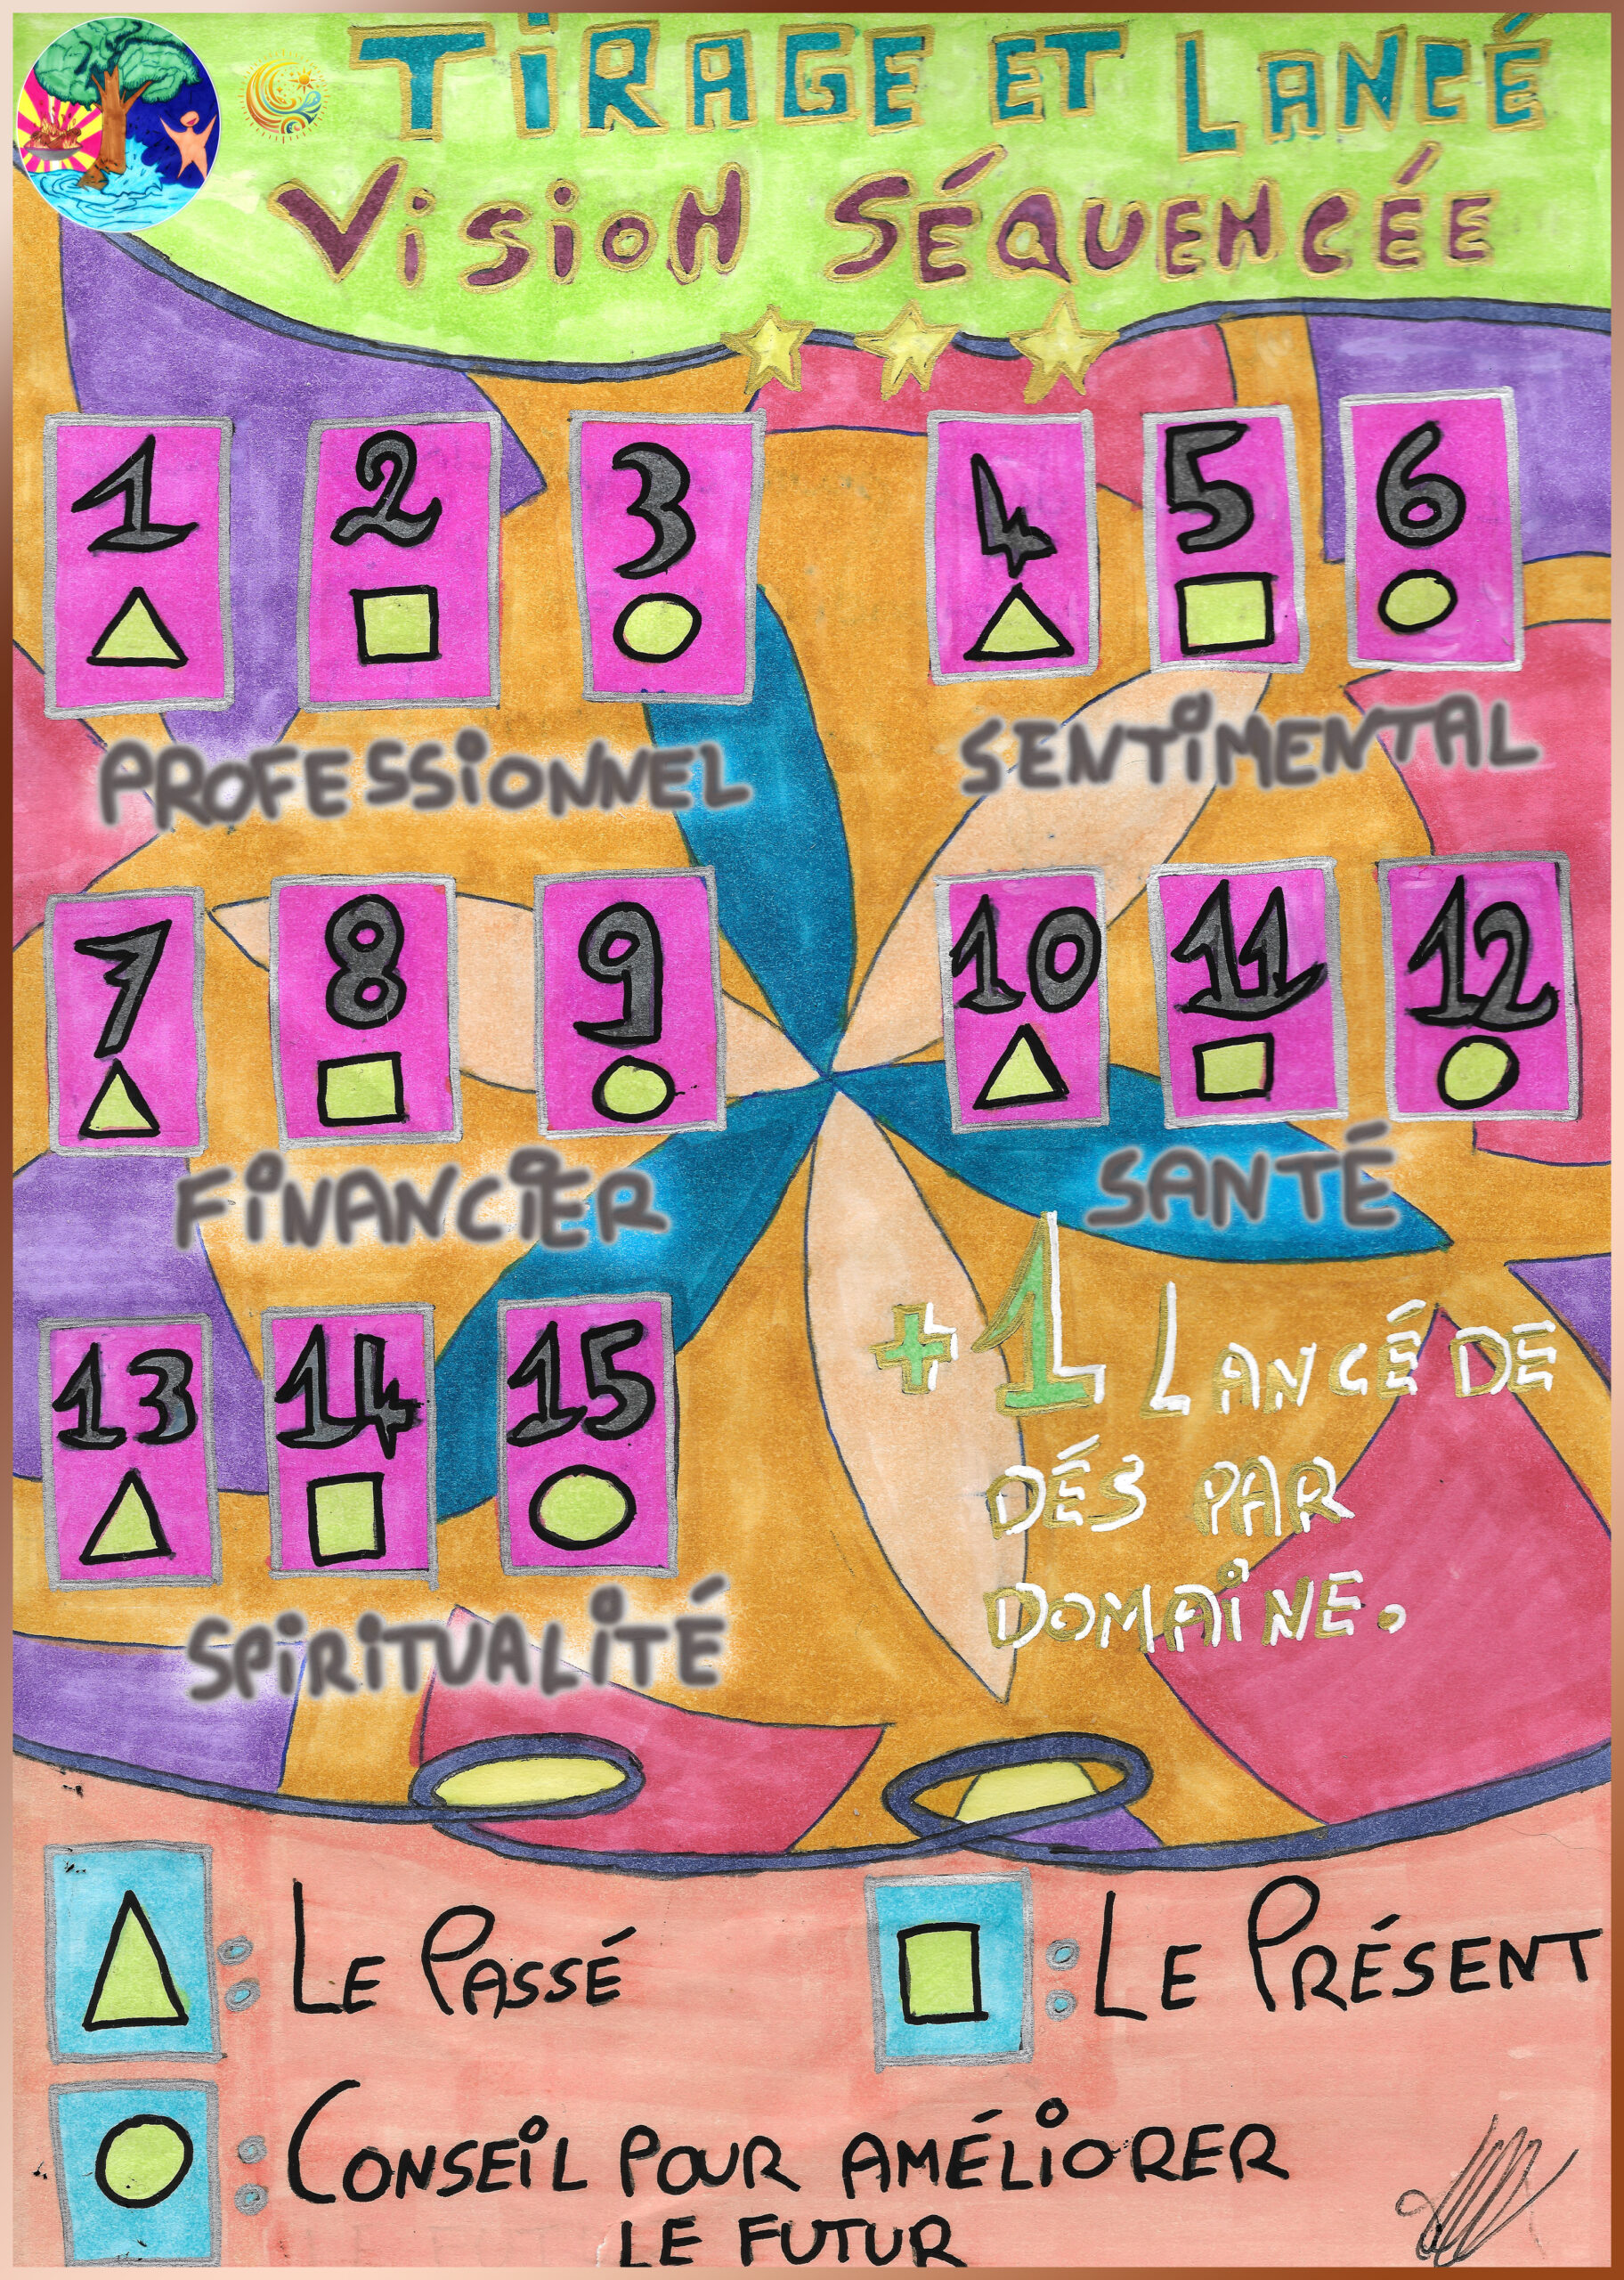 TiRAGE ET LANCÉ
ViSiON SÉQUENCÉE
1 2 3 4 5 6
PROFESSiONNEL SENTiMENTAL
7 8 9 10 11 12
FiNANCiER SANTÉ
13 14 15
+1 LANCÉ DE
DÉS PAR
DOMAiNE.
SPiRiTUALiTÉ
: LE PASSÉ : LE PRÉSENT
: CONSEiL POUR AMÉLiORER
LE FUTUR